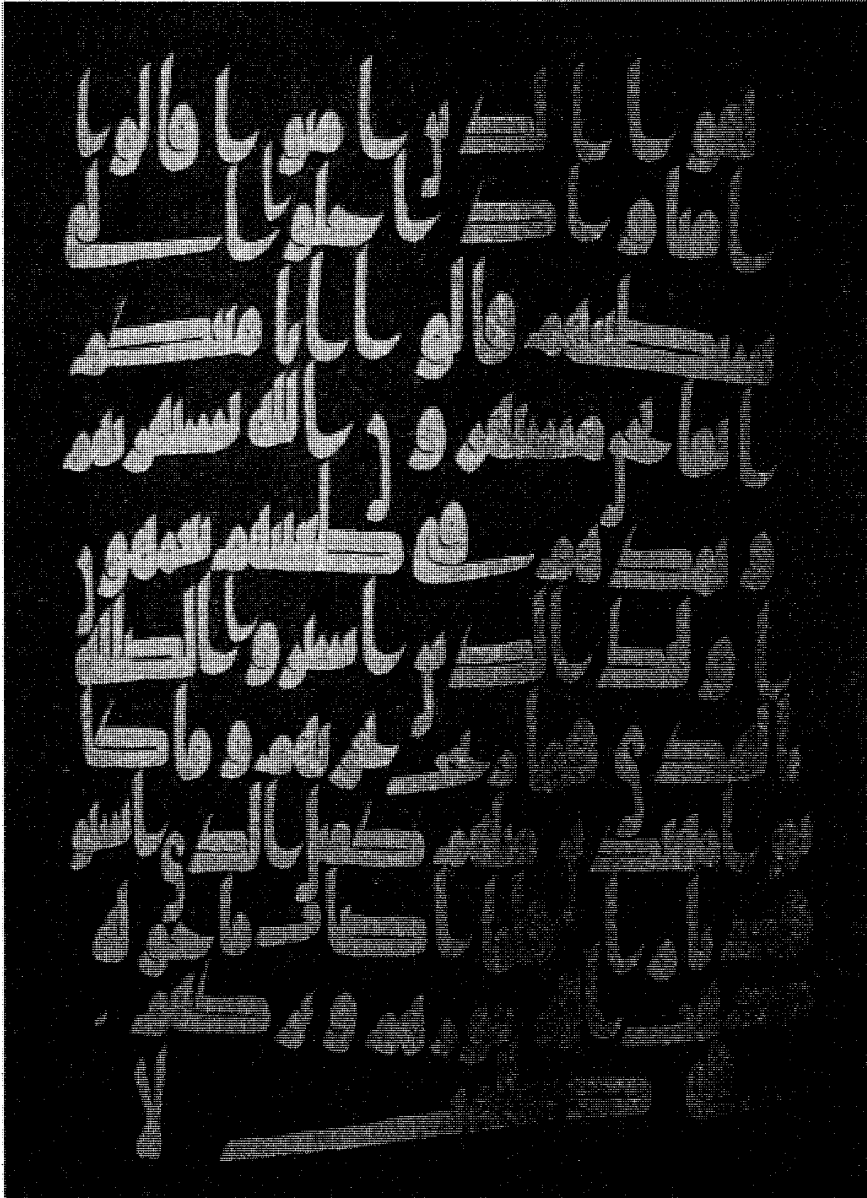 لقوا الذين امنوا قالوا
امنا و اذا خلوا الى
شيطينهم قالوا انا معكم
انما نحن مستهزون الله يستهزى بهم
و يمدهم في طغينهم يعمهون
اولئك الذين اشتروا الضللة
بالهدى فما ربحت تجرتهم و ما كا
نوا مهتدين مثلهم كمثل الذي استو
قد نارا فلما اضات ما حوله
ذهب الله بنورهم و تركهم
في ظلمت لا